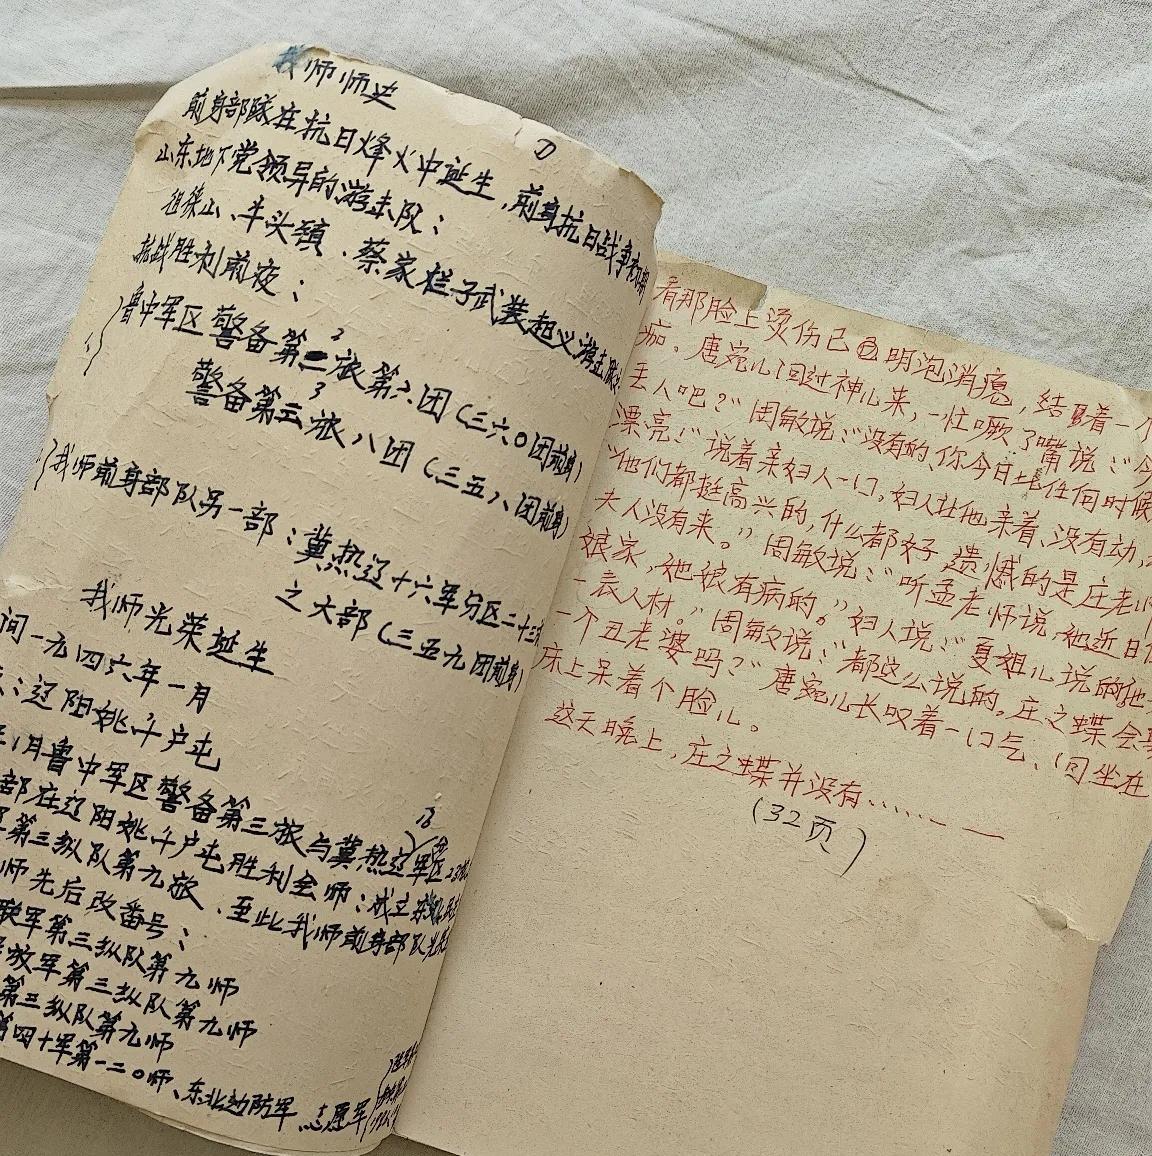 我师师史
①
前身部隊在抗日烽火中诞生,前身抗日战争初期
山东地下党领导的游击队:
徂徕山、牛头镇、蔡家栏子武装起义游击队
抗战胜利前夜:
鲁中军区警备第三旅第六团(三六〇团前身)
警备第三旅八团(三五八团前身)
我师前身部队另一部:冀热辽十六军分区二十三
之大部(三五九团前身)
我师光荣诞生
间一九四六年一月
:辽阳姚千户屯
1月鲁中军区警备第三旅与冀热辽16军区23
部在辽阳姚千户屯胜利会师:成立东
第三纵队第九旅、至此我师前身部队光
师先后改番号:
联军第三纵队第九师
放军第三纵队第九师
第三纵队第九师
第四十军第一二〇师、东北边防军、志愿军
看那脸上烫伤已明泡消瘪,结着一个
痂。唐宛儿回过神儿来,一忙噘了嘴说:“今
丢人吧?”周敏说:“没有的,你今日比任何时候
漂亮!”说着亲妇人一口,妇人让他亲着,没有动,
“他们都挺高兴的,什么都好,遗憾的是庄老师
夫人没有来。”周敏说:“听孟老师说,她近日住
娘家,她娘有病的。”妇人说:“夏姐儿说的他
一表人材。”周敏说:“都这么说的,庄之蝶会要
一个丑老婆吗?”唐宛儿长叹着一口气、回坐在
床上呆着个脸儿。
这天晚上,庄之蝶并没有……——
(32页)